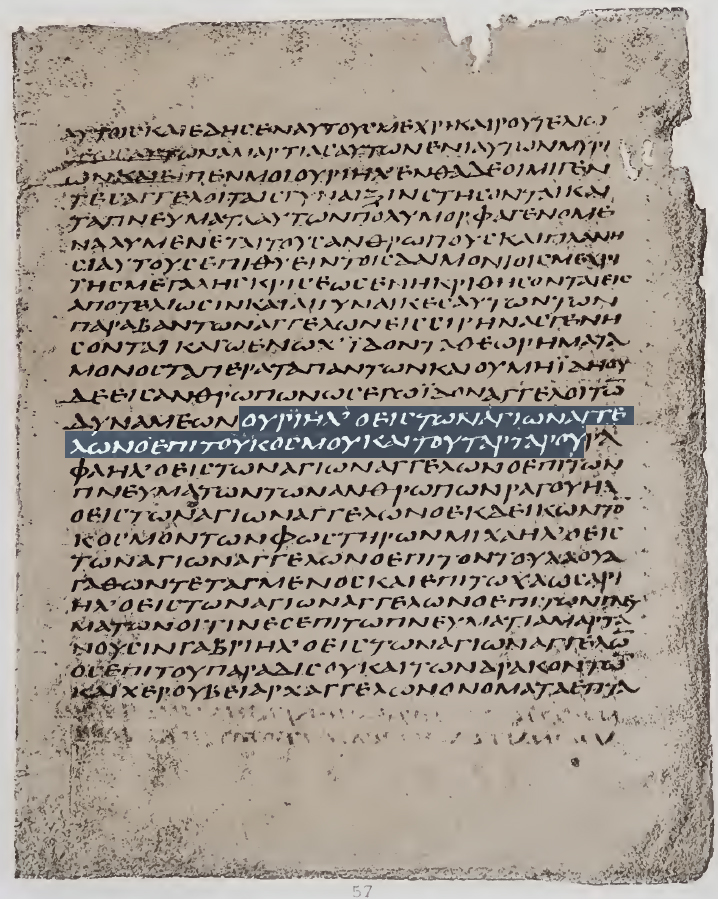 ΑΥΤΟΙϹΚΑΙΕΔΗϹΕΝΑΥΤΟΥϹΜΕΧΡΙΚΑΙΡΟΥΤΕΛΙΩ
ϹΕΩϹΑΥΤΩΝΑΜΑΡΤΙΑϹΑΥΤΩΝΕΝΙΑΥΤΩΝΜΥΡΙ
ΩΝΚΑΙΕΙΠΕΝΜΟΙΟΥΡΙΗΛΕΝΘΑΔΕΟΙΜΙΓΕΝ
ΤΕϹΑΓΓΕΛΟΙΤΑΙϹΓΥΝΑΙΞΙΝϹΤΗϹΟΝΤΑΙΚΑΙ
ΤΑΠΝΕΥΜΑΤΑΑΥΤΩΝΠΟΛΥΜΟΡΦΑΓΕΝΟΜΕ
ΝΑΛΥΜΕΝΕΤΑΙΤΟΥϹΑΝΘΡΩΠΟΥϹΚΑΙΠΛΑΝΗ
ϹΙΑΥΤΟΥϹΕΠΙΘΥΕΙΝΤΟΙϹΔΑΙΜΟΝΙΟΙϹΜΕΧΡΙ
ΤΗϹΜΕΓΑΛΗϹΚΡΙϹΕΩϹΕΝΗΚΡΙΘΗϹΟΝΤΑΙΕΙϹ
ΑΠΟΤΕΛΙΩϹΙΝΚΑΙΑΙΓΥΝΑΙΚΕϹΑΥΤΩΝΤΩΝ
ΠΑΡΑΒΑΝΤΩΝΑΓΓΕΛΩΝΕΙϹϹΙΡΗΝΑϹΓΕΝΗ
ϹΟΝΤΑΙΚΑΓΩΕΝΩΧ’ΪΔΟΝΤΑΘΕΩΡΗΜΑΤΑ
ΜΟΝΟϹΤΑΠΕΡΑΤΑΠΑΝΤΩΝΚΑΙΟΥΜΗΪΔΗΟΥ
ΔΕΕΙϹΑΝΘΡΩΠΩΝΩϹΕΓΩΪΔΟΝΑΓΓΕΛΟΙΤΩ̅
ΔΥΝΑΜΕΩΝΟΥΡΙΗΛ’ΟΕΙϹΤΩΝΑΓΙΩΝΑΓΓΕ
ΛΩΝΟΕΠΙΤΟΥΚΟϹΜΟΥΚΑΙΤΟΥΤΑΡΤΑΡΟΥΡΑ
ΦΑΗΛ’ΟΕΙϹΤΩΝΑΓΙΩΝΑΓΓΕΛΩΝΟΕΠΙΤΩΝ
ΠΝΕΥΜΑΤΩΝΤΩΝΑΝΘΡΩΠΩΝΡΑΓΟΥΗΛ
ΟΕΙϹΤΩΝΑΓΙΩΝΑΓΓΕΛΩΝΟΕΚΔΕΙΚΩΝΤΟ
ΚΟϹΜΟΝΤΩΝΦΩϹΤΗΡΩΝΜΙΧΑΗΛ’ΟΕΙϹ
ΤΩΝΑΓΙΩΝΑΓΓΕΛΩΝΟΕΠΙΤΟΝΤΟΥΛΑΟΥΑ
ΓΑΘΩΝΤΕΤΑΓΜΕΝΟϹΚΑΙΕΠΙΤΩΧΑΩϹΑΡΙ
ΗΛ’ΟΕΙϹΤΩΝΑΓΙΩΝΑΓΓΕΛΩΝΟΕΠΙΤΩΝΠΝΕΥ
ΜΑΤΩΝΟΙΤΙΝΕϹΕΠΙΤΩΠΝΕΥΜΑΤΙΑΜΑΡΤΑ
ΝΟΥϹΙΝΓΑΒΡΙΗΛ’ΟΕΙϹΤΩΝΑΓΙΩΝΑΓΓΕΛΩ̅
ΟϹΕΠΙΤΟΥΠΑΡΑΔΙϹΟΥΚΑΙΤΩΝΔΡΑΚΟΝΤΩ̅
ΚΑΙΧΕΡΟΥΒΕΙΑΡΧΑΓΓΕΛΩΝΟΝΟΜΑΤΑΕΠΤΑ
57